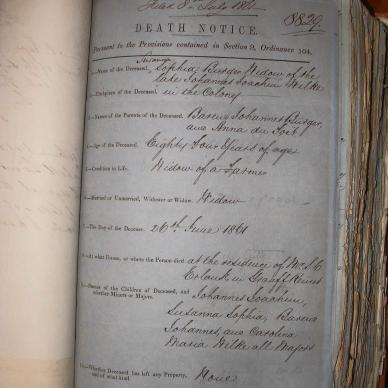 Filed 8th July 1861
8829.
DEATH NOTICE.
Pursuant to the Provisions contained in Section 9, Ordinance 104.
Susanna
1.—Name of the Deceased, Sophia Burger Widow of the
late Johannes Joachim Wilke
2.—Birthplace of the Deceased, in the Colony
3.—Names of the Parents of the Deceased, Barend Johannes Burger,
and Anna du Toit
4.—Age of the Deceased, Eighty four Years of age
5.—Condition in Life, Widow of a Farmer
6.—Married or Unmarried, Widower or Widow, Widow
7.—The Day of the Decease, 26th June 1861
8.—At what House, or where the Person died, at the residence of Mr. J. C.
in Graaff Reinet
9.—Names of the Children of Deceased, and Johannes Joachim,
whether Minors or Majors.
Susanna Sophia, Barend
Johannes, and Carolina
Maria Wilke all Majors
10.—Whether Deceased has left any Property, None
and of what kind.